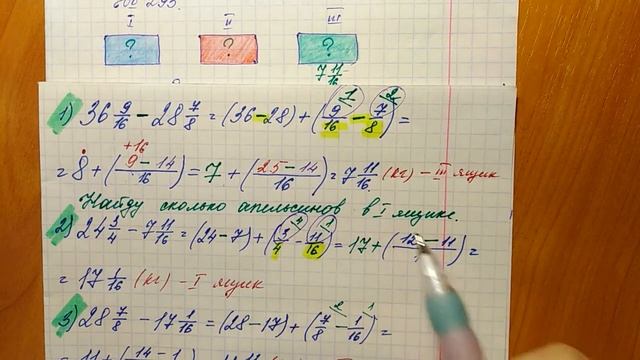 600 293.
I II III
? ? ?
7 11/16
1) 36 9/16 - 28 7/8 = (36-28) + (9/16 - 7/8) =
+16
= 8 + (9-14/16) = 7 + (25-14/16) = 7 11/16 (кг) - III ящик
Найду сколько апельсинов в I ящике.
2) 24 3/4 - 7 11/16 = (24-7) + (3/4 - 11/16) = 17 + (12-11/1) =
= 17 1/16 (кг) - I ящик
3) 28 7/8 - 17 1/16 = (28-17) + (7/8 - 1/16) =
= 11 + (14-1